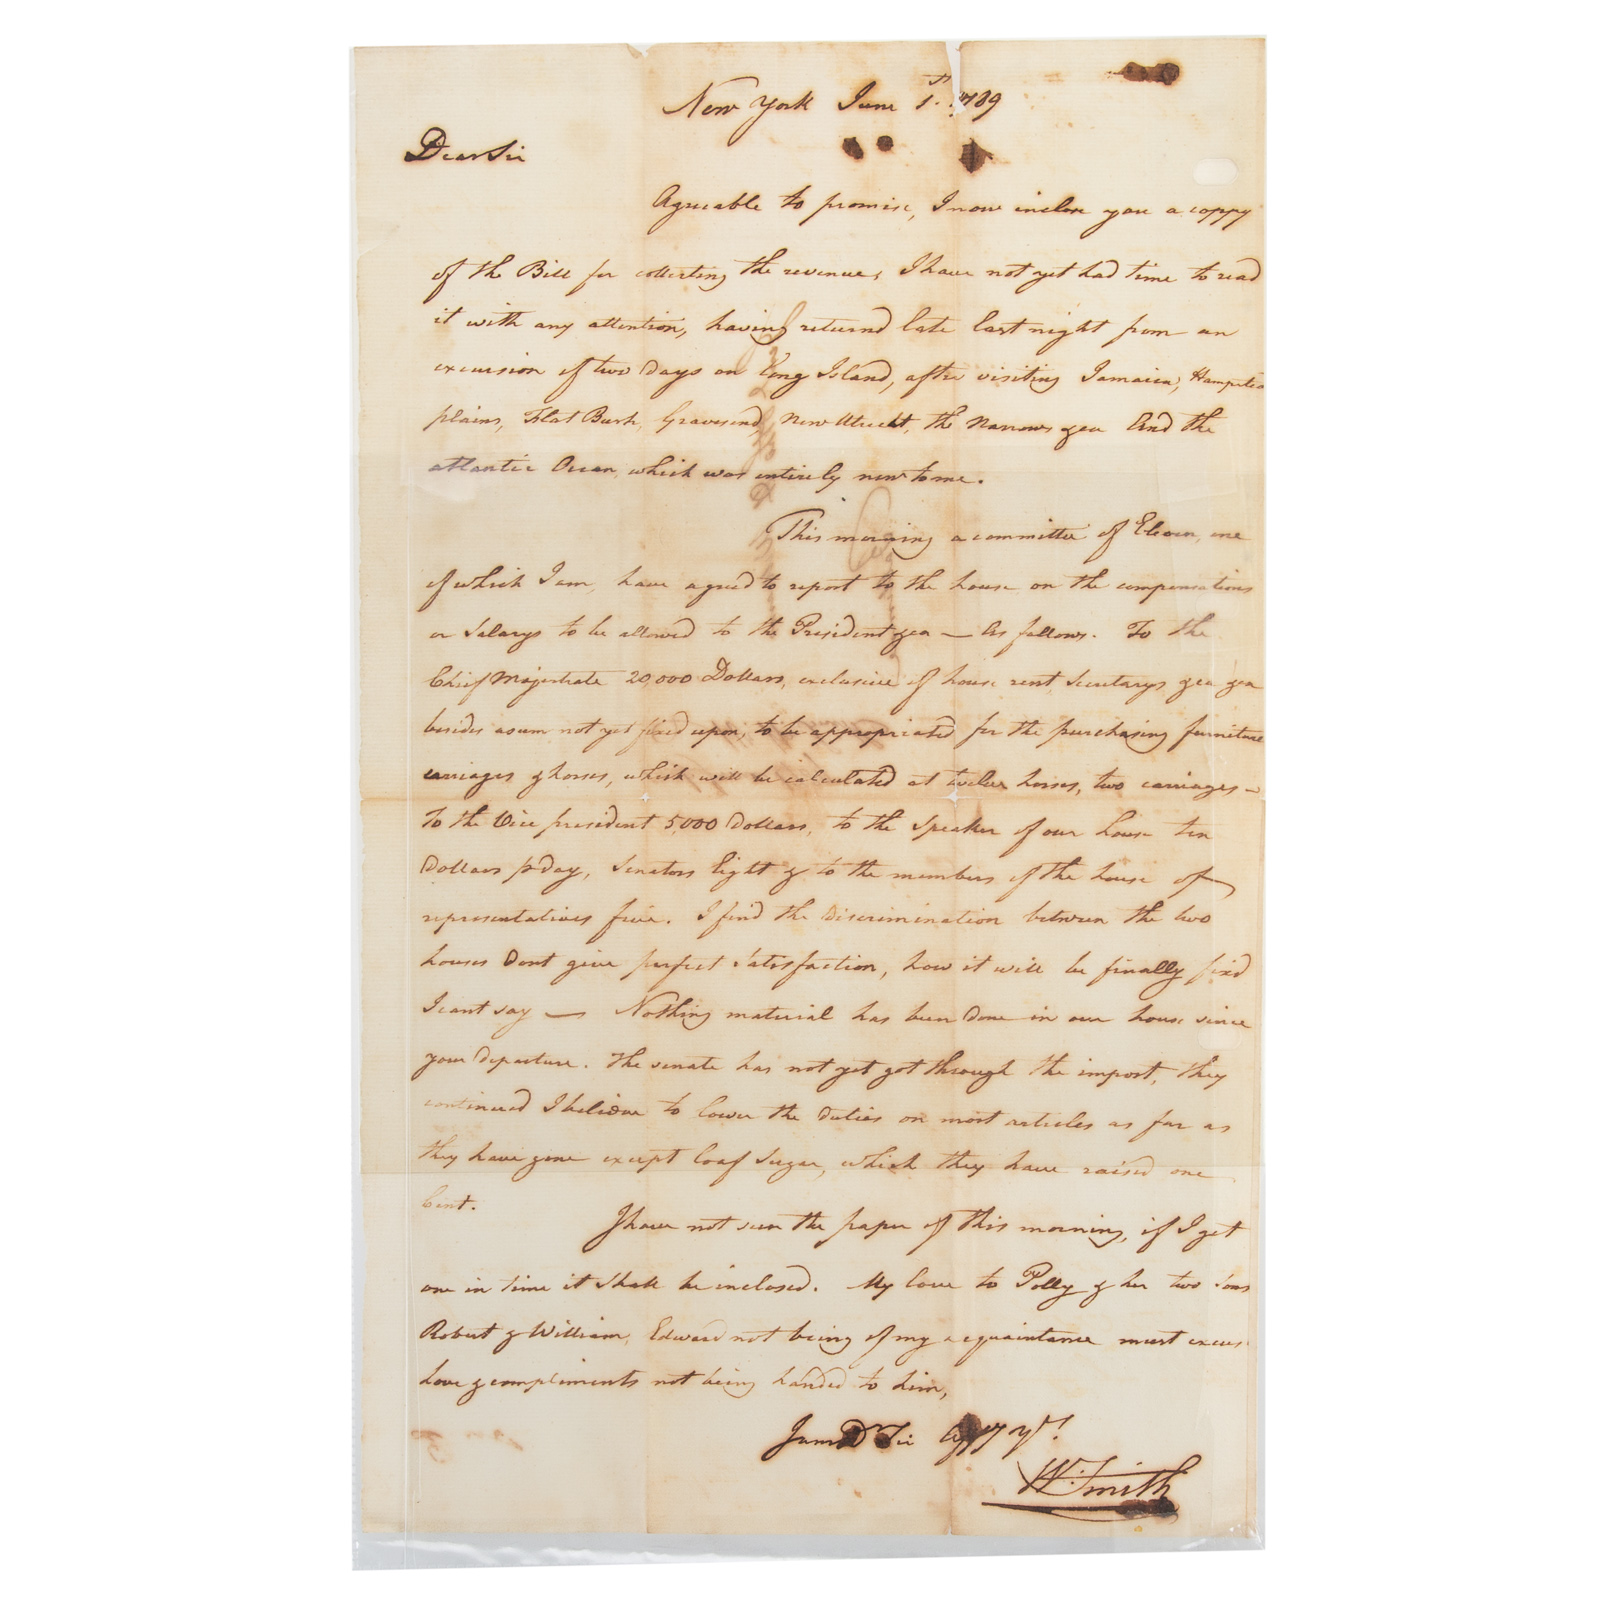 New York June 1st 1789
Dear Sir
Agreeable to promise, I now inclose you a coppy
of the Bill for collecting the revenue, I have not yet had time to read
it with any attention, having returned late last night from an
excursion of two days on Long Island, after visiting Jamaica, Hampstead
plains, Flat Bush, Gravesend, New Utrecht, the Narrows &ca And the
atlantic Ocean, which was entirely new to me.
This morning a committee of Eleven, one
of which I am, have agreed to report to the house on the compensations
or Salarys to be allowed to the President &ca — As follows. To the
Chief Majestrate 20,000 Dollars, exclusive of house rent, Secretarys &ca &ca
besides a sum not yet fixed upon, to be appropriated for the purchasing furniture
carriages & horses, which will be calculated at twelve horses, two carriages —
To the Vice president 5,000 Dollars, to the Speaker of our house ten
Dollars pr day, Senators Eight & to the members of the house of
representatives five. I find the Discrimination between the two
houses Dont give perfect Satisfaction, how it will be finally fixd
I cant say — Nothing material has been Done in our house since
your Departure. The senate has not yet got through the impost, they
continued I believe to lower the duties on most articles as far as
they have gone except loaf Sugar, which they have raised one
Cent.
I have not seen the paper of this morning, if I get
one in time it shall be inclosed. My love to Polly & her two Sons
Robert & William, Edward not being of my acquaintance must excuse
love & compliments not being handed to him,
I am Dr Sir
Wm Smith